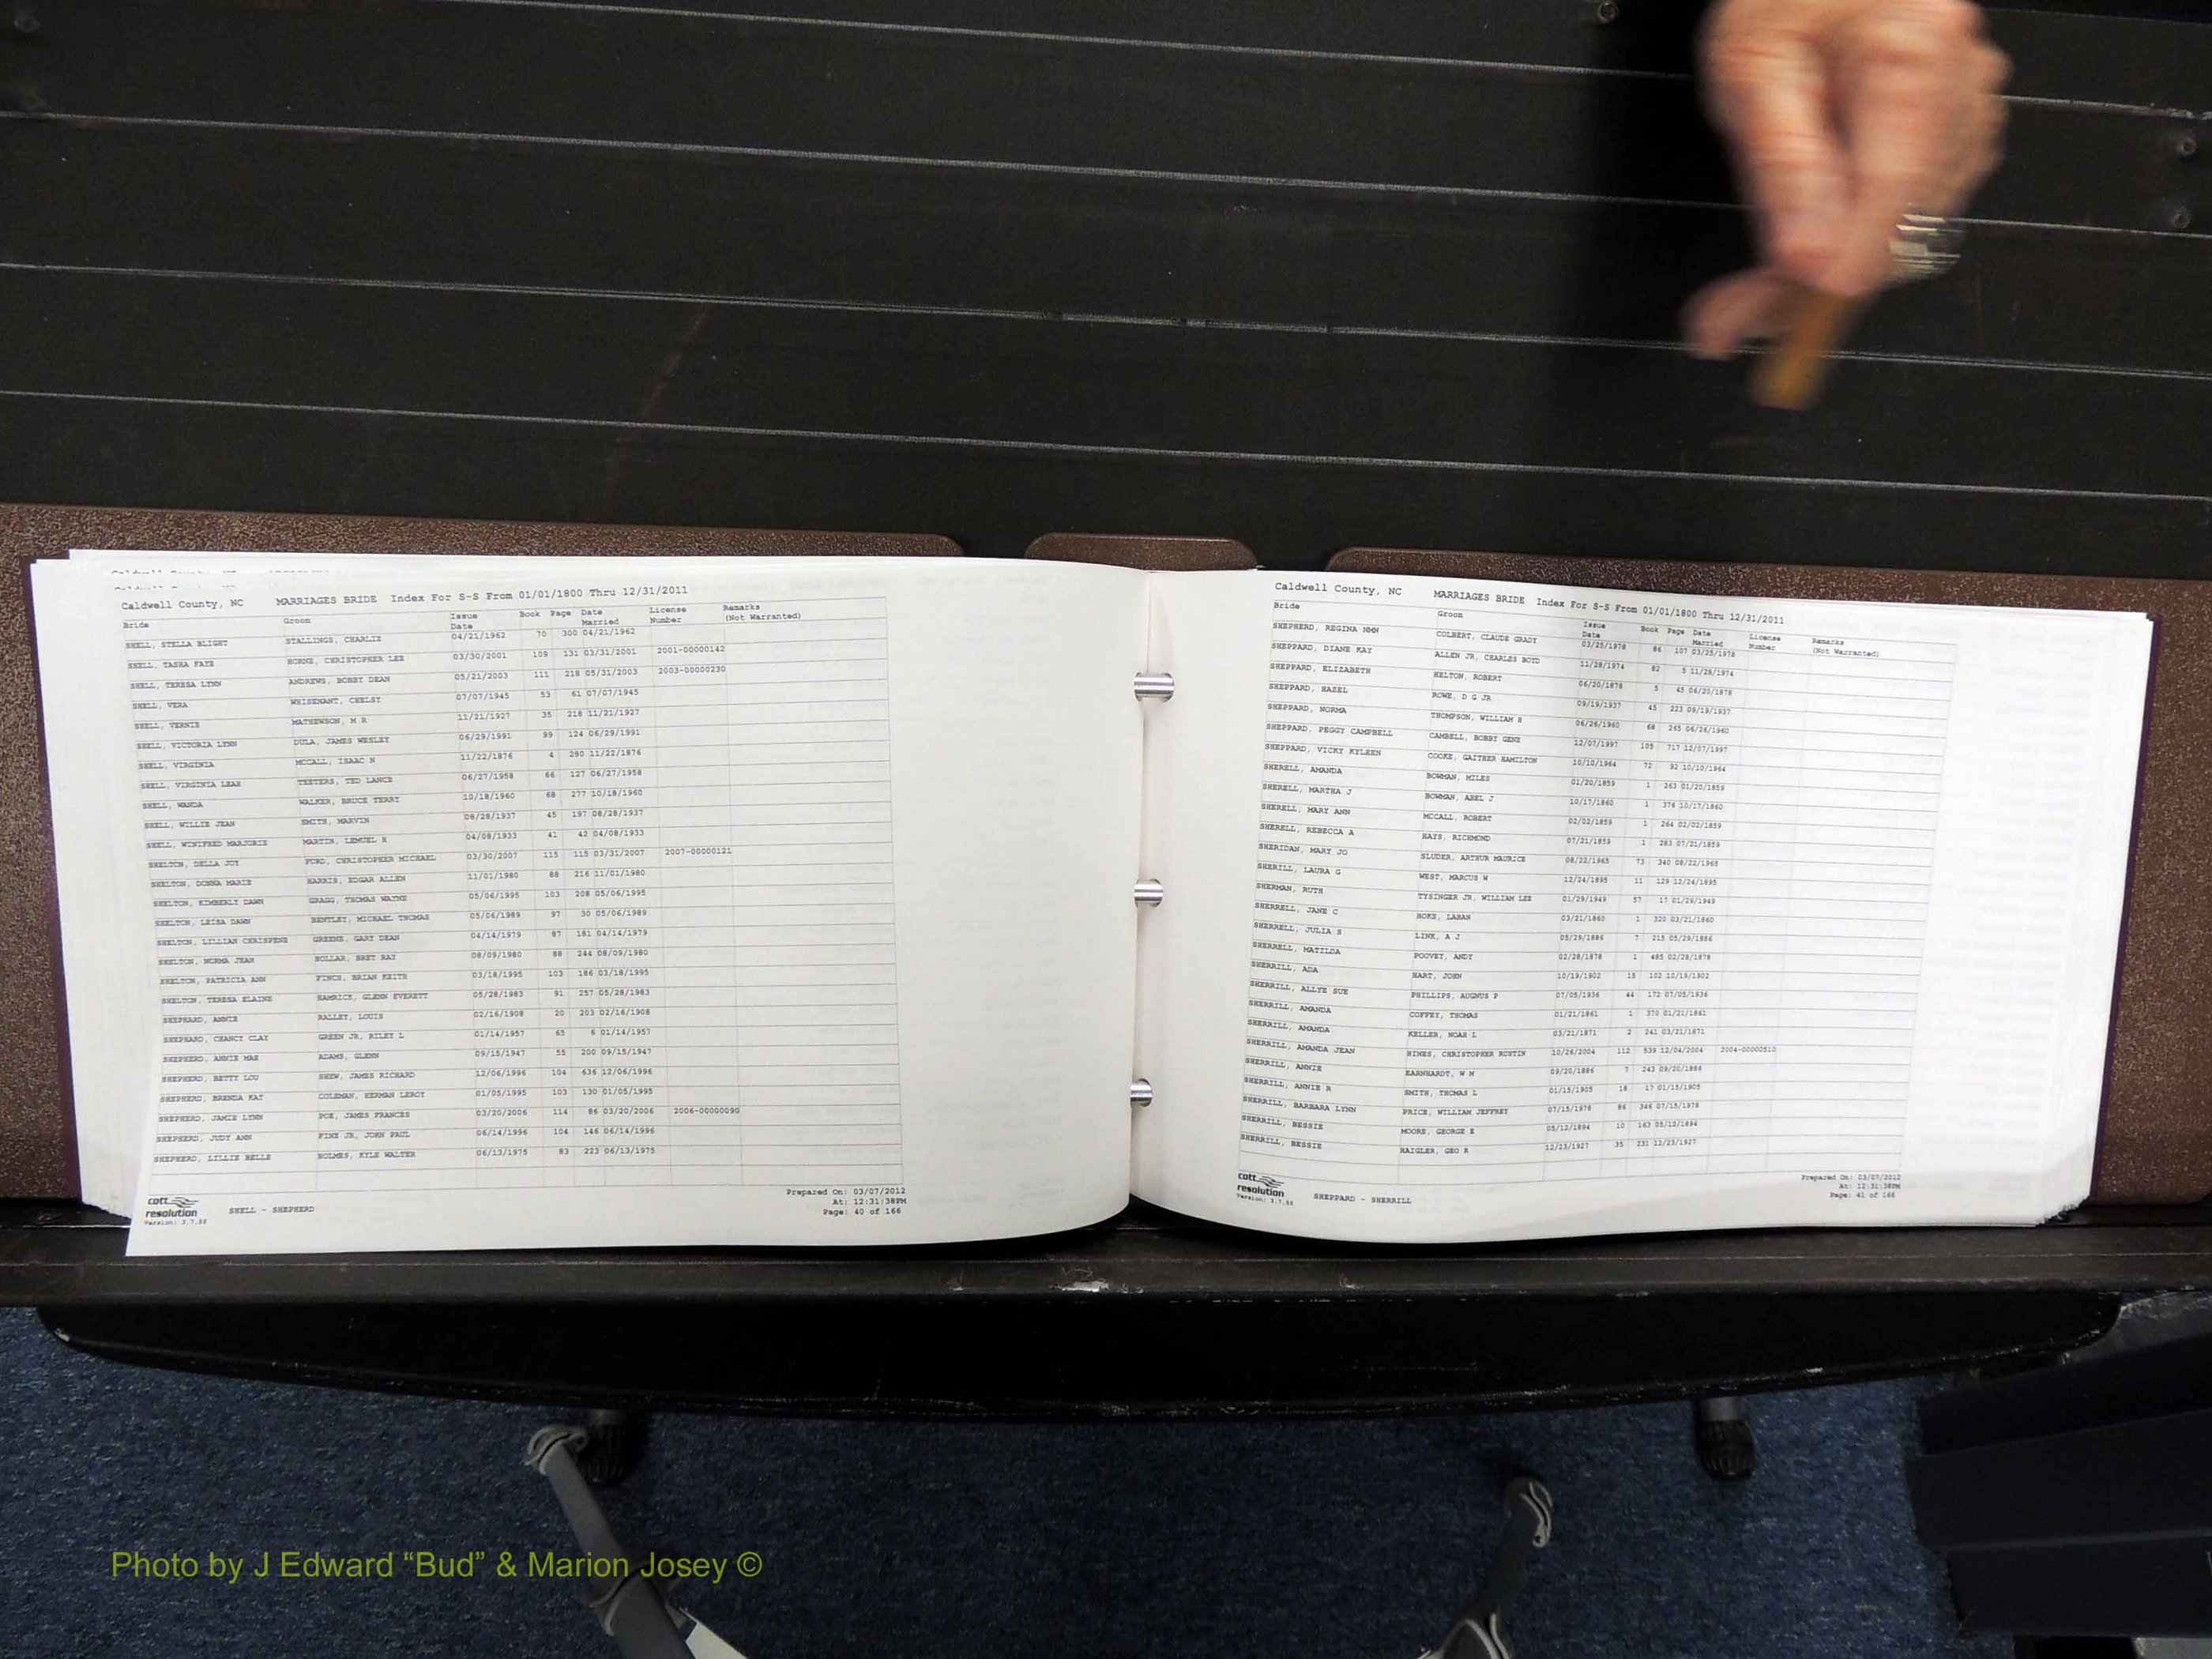 Caldwell County, NC MARRIAGES BRIDE Index For S-S From 01/01/1800 Thru 12/31/2011
Bride Groom Issue Date Book Page Date Married License Number Remarks (Not Warranted)
SHELL, STELLA BLIGHT STALLINGS, CHARLIE 04/21/1962 70 300 04/21/1962
SHELL, TASHA FAYE HORNE, CHRISTOPHER LEE 03/30/2001 109 131 03/31/2001 2001-00000142
SHELL, TERESA LYNN ANDREWS, BOBBY DEAN 05/21/2003 111 218 05/31/2003 2003-00000230
SHELL, VERA WHISENANT, CHELSY 07/07/1945 53 61 07/07/1945
SHELL, VERNIE MATHEWSON, M R 11/21/1927 35 218 11/21/1927
SHELL, VICTORIA LYNN DULA, JAMES WESLEY 06/29/1991 99 124 06/29/1991
SHELL, VIRGINIA MCCALL, ISAAC N 11/22/1876 4 280 11/22/1876
SHELL, VIRGINIA LEAH TEETERS, TED LANCE 06/27/1958 66 127 06/27/1958
SHELL, WANDA WALKER, BRUCE TERRY 10/18/1960 68 277 10/18/1960
SHELL, WILLIE JEAN SMITH, MARVIN 08/28/1937 45 197 08/28/1937
SHELL, WINIFRED MARJORIE MARTIN, LEMUEL R 04/08/1933 41 42 04/08/1933
SHELTON, DELLA JOY FORD, CHRISTOPHER MICHAEL 03/30/2007 115 115 03/31/2007 2007-00000121
SHELTON, DONNA MARIE HARRIS, EDGAR ALLEN 11/01/1980 88 216 11/01/1980
SHELTON, KIMBERLY DAWN GRAGG, THOMAS WAYNE 05/06/1995 103 208 05/06/1995
SHELTON, LEISA DAWN BENTLEY, MICHAEL THOMAS 05/06/1989 97 30 05/06/1989
SHELTON, LILLIAN CHRISPENE GREENE, GARY DEAN 04/14/1979 87 181 04/14/1979
SHELTON, NORMA JEAN HOLLAR, BRET RAY 08/09/1980 88 244 08/09/1980
SHELTON, PATRICIA ANN FINCH, BRIAN KEITH 03/18/1995 103 186 03/18/1995
SHELTON, TERESA ELAINE HAMRICK, GLENN EVERETT 05/28/1983 91 257 05/28/1983
SHEPHARD, ANNIE RALLEY, LOUIS 02/16/1908 20 203 02/16/1908
SHEPHARD, CHANCY CLAY GREEN JR, RILEY L 01/14/1957 65 6 01/14/1957
SHEPHERD, ANNIE MAE ADAMS, GLENN 09/15/1947 55 200 09/15/1947
SHEPHERD, BETTY LOU SHEW, JAMES RICHARD 12/06/1996 104 636 12/06/1996
SHEPHERD, BRENDA KAY COLEMAN, HERMAN LEROY 01/05/1995 103 130 01/05/1995
SHEPHERD, JAMIE LYNN POE, JAMES FRANCES 03/20/2006 114 86 03/20/2006 2006-00000090
SHEPHERD, JUDY ANN FINE JR, JOHN PAUL 06/14/1996 104 146 06/14/1996
SHEPHERD, LILLIE BELLE HOLMES, KYLE WALTER 06/13/1975 83 223 06/13/1975
cott resolution Version: 3.7.55
SHELL - SHEPHERD
Prepared On: 03/07/2012
At: 12:31:38PM
Page: 40 of 166
Caldwell County, NC MARRIAGES BRIDE Index For S-S From 01/01/1800 Thru 12/31/2011
Bride Groom Issue Date Book Page Date Married License Number Remarks (Not Warranted)
SHEPHERD, REGINA NMN COLBERT, CLAUDE GRADY 03/25/1978 86 107 03/25/1978
SHEPPARD, DIANE KAY ALLEN JR, CHARLES BOYD 11/28/1974 82 5 11/28/1974
SHEPPARD, ELIZABETH HELTON, ROBERT 06/20/1878 5 45 06/20/1878
SHEPPARD, HAZEL ROWE, D G JR 09/19/1937 45 223 09/19/1937
SHEPPARD, NORMA THOMPSON, WILLIAM H 06/26/1960 68 265 06/26/1960
SHEPPARD, PEGGY CAMPBELL CAMBELL, BOBBY GENE 12/07/1997 105 717 12/07/1997
SHEPPARD, VICKY KYLEEN COOKE, GAITHER HAMILTON 10/10/1964 72 92 10/10/1964
SHERELL, AMANDA BOWMAN, MILES 01/20/1859 1 263 01/20/1859
SHERELL, MARTHA J BOWMAN, ABEL J 10/17/1860 1 376 10/17/1860
SHERELL, MARY ANN MCCALL, ROBERT 02/02/1859 1 264 02/02/1859
SHERELL, REBECCA A HAYS, RICHMOND 07/21/1859 1 283 07/21/1859
SHERIDAN, MARY JO SLUDER, ARTHUR MAURICE 08/22/1965 73 340 08/22/1965
SHERILL, LAURA G WEST, MARCUS W 12/24/1895 11 129 12/24/1895
SHERMAN, RUTH TYSINGER JR, WILLIAM LEE 01/29/1949 57 17 01/29/1949
SHERRELL, JANE C HOKE, LABAN 03/21/1860 1 320 03/21/1860
SHERRELL, JULIA S LINK, A J 05/29/1886 7 215 05/29/1886
SHERRELL, MATILDA POOVEY, ANDY 02/28/1878 1 485 02/28/1878
SHERRILL, ADA HART, JOHN 10/19/1902 15 102 10/19/1902
SHERRILL, ALLYE SUE PHILLIPS, AUGNUS P 07/05/1936 44 172 07/05/1936
SHERRILL, AMANDA COFFEY, THOMAS 01/21/1861 1 370 01/21/1861
SHERRILL, AMANDA KELLER, NOAH L 03/21/1871 2 241 03/21/1871
SHERRILL, AMANDA JEAN HINES, CHRISTOPHER RUSTIN 10/26/2004 112 539 12/04/2004 2004-00000510
SHERRILL, ANNIE EARNHARDT, W M 09/20/1886 7 243 09/20/1886
SHERRILL, ANNIE R SMITH, THOMAS L 01/15/1905 18 17 01/15/1905
SHERRILL, BARBARA LYNN PRICE, WILLIAM JEFFREY 07/15/1978 86 346 07/15/1978
SHERRILL, BESSIE MOORE, GEORGE E 05/12/1894 10 163 05/12/1894
SHERRILL, BESSIE HAIGLER, GEO R 12/23/1927 35 231 12/23/1927
cott resolution Version: 3.7.55
SHEPPARD - SHERRILL
Prepared On: 03/07/2012
At: 12:31:38PM
Page: 41 of 166
Photo by J Edward “Bud” & Marion Josey ©